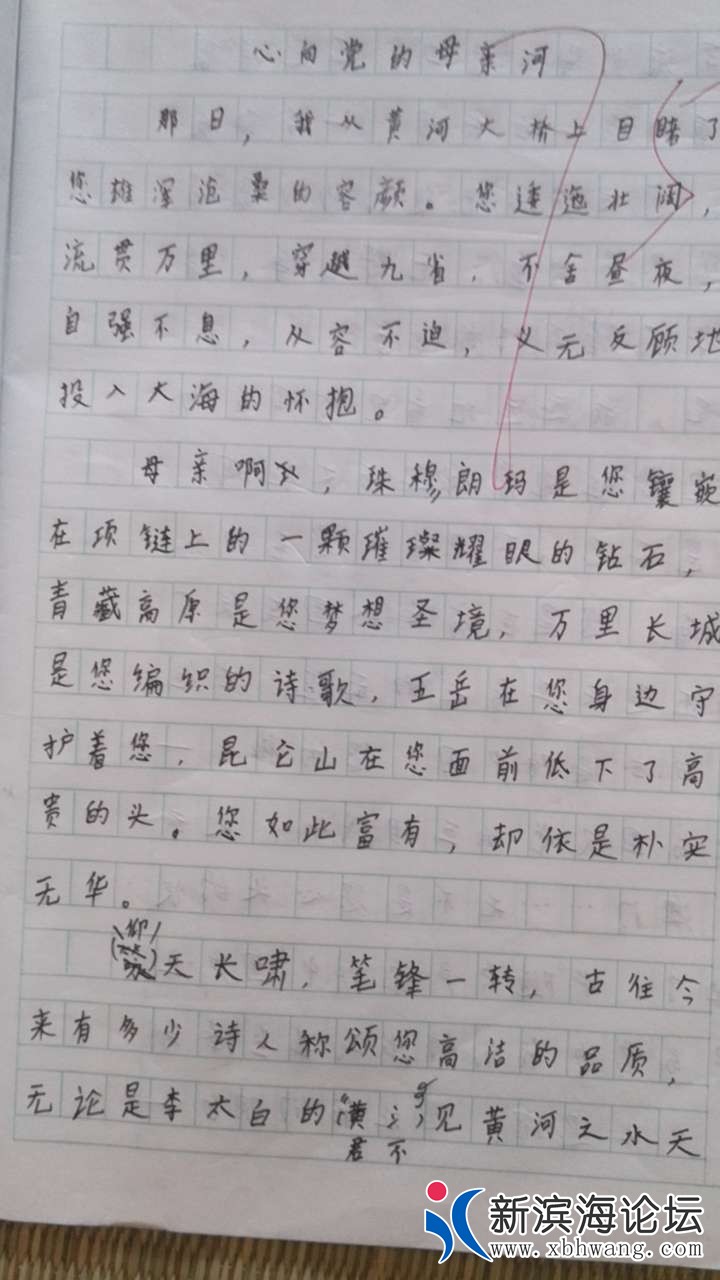 心向党的母亲河
那日，我从黄河大桥上目睹了
您雄浑沧桑的容颜。您逶迤壮阔，
流贯万里，穿越九省，不舍昼夜，
自强不息，从容不迫，义无反顾地
投入大海的怀抱。
母亲啊，珠穆朗玛是您镶嵌
在项链上的一颗璀璨耀眼的钻石，
青藏高原是您梦想圣境，万里长城
是您编织的诗歌，五岳在您身边守
护着您，昆仑山在您面前低下了高
贵的头。您如此富有，却依是朴实
无华。
仰天长啸，笔锋一转，古往今
来有多少诗人称颂您高洁的品质，
无论是李太白的“君不见黄河之水天
新滨海论坛
www.xbhwang.com